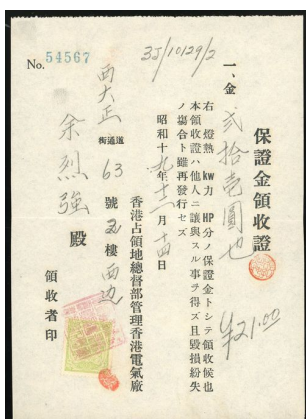 No. 54567
3J/10129/2
保證金領收證
一、金 弐拾壱圓也
¥21.00
右 燈 熱 kw 力 HP 分ノ保證金トシテ領收候也
本領收證ハ他人ニ讓與スル事ヲ得ズ且毀損紛失
ノ場合ト雖再發行セズ
昭和十九年十二月十四日
香港占領地總督部管理香港電氣廠
領收者印
西大正 街通道 63 號 弍 樓 西边
余烈強 殿